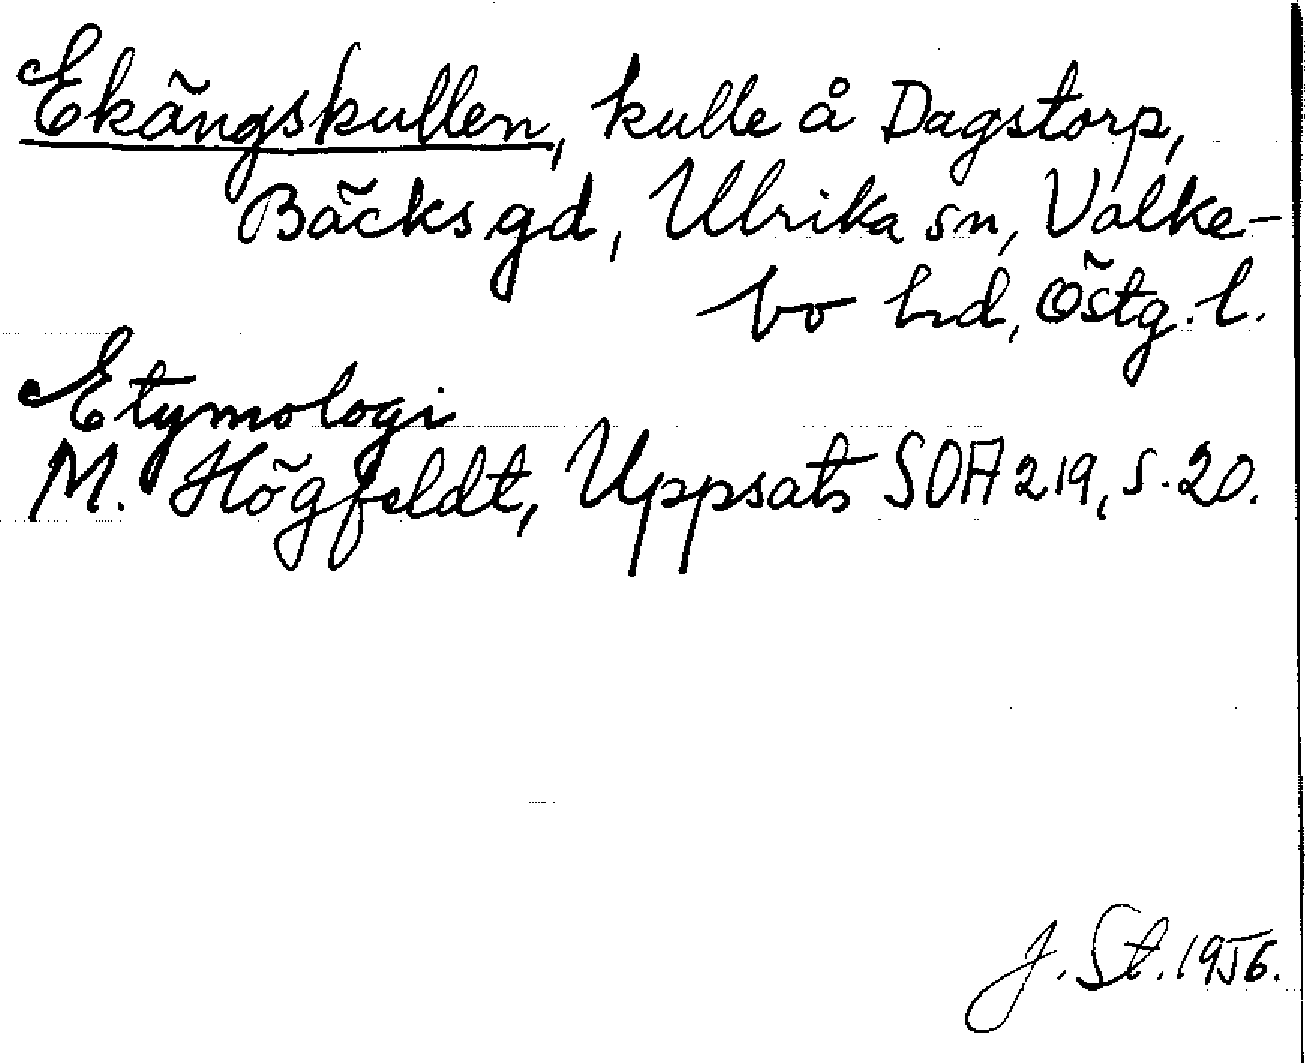 Ekängskullen, kulle å Dagstorp,
Bäcksgd, Ulrika sn, Valke-
bo hd, Östg. l.
Etymologi
M. Högfeldt, Uppsats SOA 219, s. 20.
J. St. 1956.